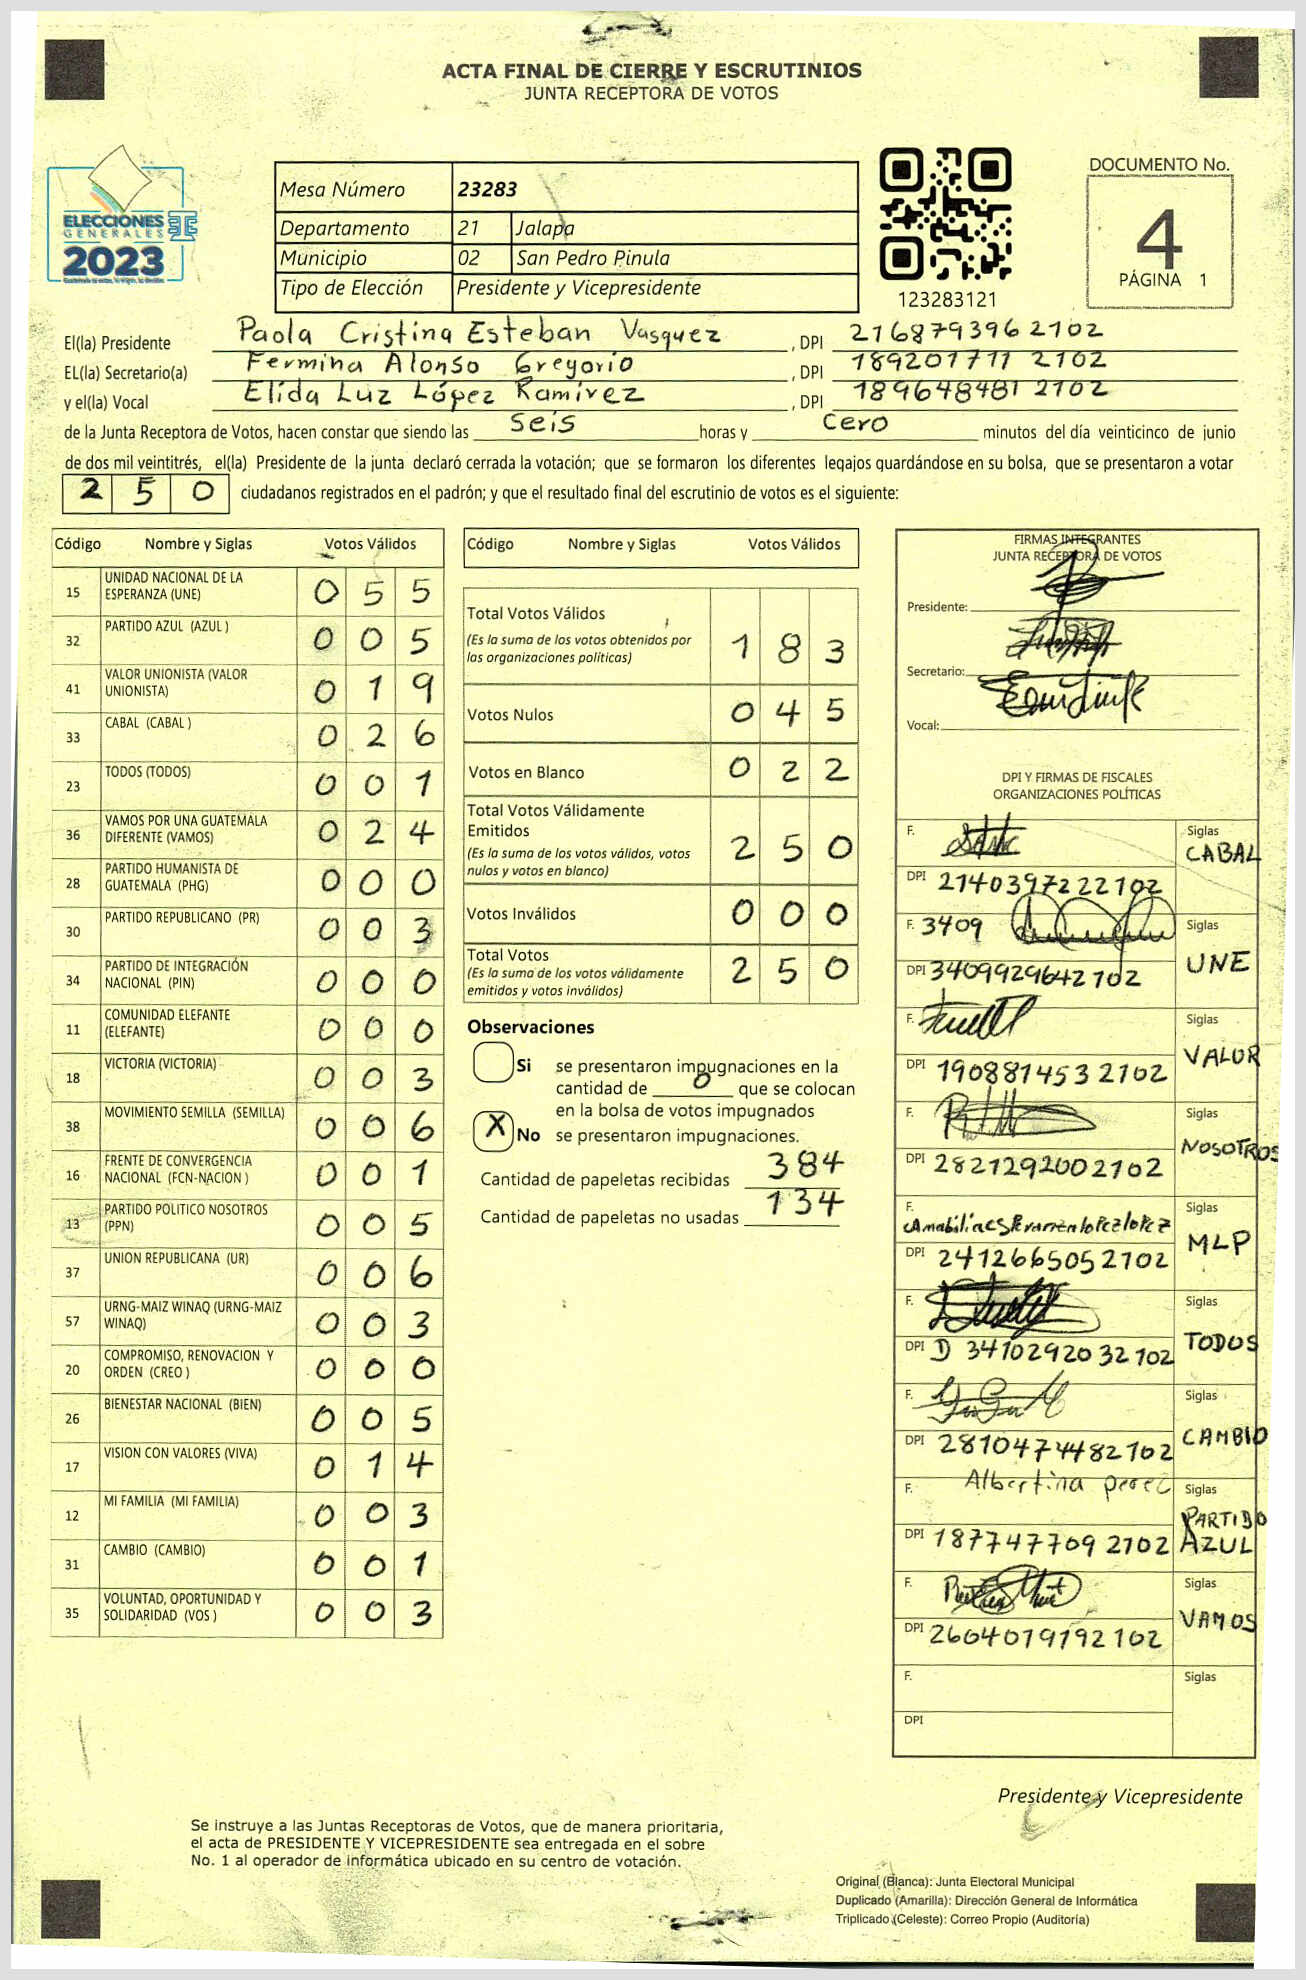 ACTA FINAL DE CIERRE Y ESCRUTINIOS
JUNTA RECEPTORA DE VOTOS
ELECCIONES
GENERALES
2023
Mesa Número 23283
Departamento 21 Jalapa
Municipio 02 San Pedro Pinula
Tipo de Elección Presidente y Vicepresidente
123283121
DOCUMENTO No.
4
PÁGINA 1
El(la) Presidente Paola Cristina Esteban Vasquez , DPI 216879396 2102
EL(la) Secretario(a) Fermina Alonso Gregorio , DPI 189201711 2102
y el(la) Vocal Elida Luz López Ramírez , DPI 189648481 2102
de la Junta Receptora de Votos, hacen constar que siendo las seis horas y cero minutos del día veinticinco de junio
de dos mil veintitrés, el(la) Presidente de la junta declaró cerrada la votación; que se formaron los diferentes legajos guardándose en su bolsa, que se presentaron a votar
2 5 0 ciudadanos registrados en el padrón; y que el resultado final del escrutinio de votos es el siguiente:
Código Nombre y Siglas Votos Válidos
15 UNIDAD NACIONAL DE LA ESPERANZA (UNE) 0 5 5
32 PARTIDO AZUL (AZUL ) 0 0 5
41 VALOR UNIONISTA (VALOR UNIONISTA) 0 1 9
33 CABAL (CABAL ) 0 2 6
23 TODOS (TODOS) 0 0 1
36 VAMOS POR UNA GUATEMALA DIFERENTE (VAMOS) 0 2 4
28 PARTIDO HUMANISTA DE GUATEMALA (PHG) 0 0 0
30 PARTIDO REPUBLICANO (PR) 0 0 3
34 PARTIDO DE INTEGRACIÓN NACIONAL (PIN) 0 0 0
11 COMUNIDAD ELEFANTE (ELEFANTE) 0 0 0
18 VICTORIA (VICTORIA) 0 0 3
38 MOVIMIENTO SEMILLA (SEMILLA) 0 0 6
16 FRENTE DE CONVERGENCIA NACIONAL (FCN-NACION ) 0 0 1
13 PARTIDO POLITICO NOSOTROS (PPN) 0 0 5
37 UNION REPUBLICANA (UR) 0 0 6
57 URNG-MAIZ WINAQ (URNG-MAIZ WINAQ) 0 0 3
20 COMPROMISO, RENOVACION Y ORDEN (CREO ) 0 0 0
26 BIENESTAR NACIONAL (BIEN) 0 0 5
17 VISION CON VALORES (VIVA) 0 1 4
12 MI FAMILIA (MI FAMILIA) 0 0 3
31 CAMBIO (CAMBIO) 0 0 1
35 VOLUNTAD, OPORTUNIDAD Y SOLIDARIDAD (VOS ) 0 0 3
Código Nombre y Siglas Votos Válidos
Total Votos Válidos 1 8 3
(Es la suma de los votos obtenidos por
las organizaciones políticas)
Votos Nulos 0 4 5
Votos en Blanco 0 2 2
Total Votos Válidamente
Emitidos 2 5 0
(Es la suma de los votos válidos, votos
nulos y votos en blanco)
Votos Inválidos 0 0 0
Total Votos 2 5 0
(Es la suma de los votos válidamente
emitidos y votos inválidos)
Observaciones
Si se presentaron impugnaciones en la
cantidad de 0 que se colocan
en la bolsa de votos impugnados
X No se presentaron impugnaciones.
Cantidad de papeletas recibidas 384
Cantidad de papeletas no usadas 134
FIRMAS INTEGRANTES
JUNTA RECEPTORA DE VOTOS
Presidente:
Secretario:
Vocal:
DPI Y FIRMAS DE FISCALES
ORGANIZACIONES POLÍTICAS
F. Siglas CABAL
DPI 2140397222102
F. 3409 Siglas UNE
DPI 3409929642102
F. Siglas VALOR
DPI 1908814532102
F. Siglas NOSOTROS
DPI 2821292002102
F. Siglas MLP
DPI 2412665052102
F. Siglas TODOS
DPI D 3410292032102
F. Siglas CAMBIO
DPI 2810474482102
F. Albertina perec Siglas PARTIDO AZUL
DPI 187747709 2102
F. Siglas VAMOS
DPI 2604019192102
F. Siglas
DPI
Presidente y Vicepresidente
Se instruye a las Juntas Receptoras de Votos, que de manera prioritaria,
el acta de PRESIDENTE Y VICEPRESIDENTE sea entregada en el sobre
No. 1 al operador de informática ubicado en su centro de votación.
Original (Blanca): Junta Electoral Municipal
Duplicado (Amarilla): Dirección General de Informática
Triplicado (Celeste): Correo Propio (Auditoría)